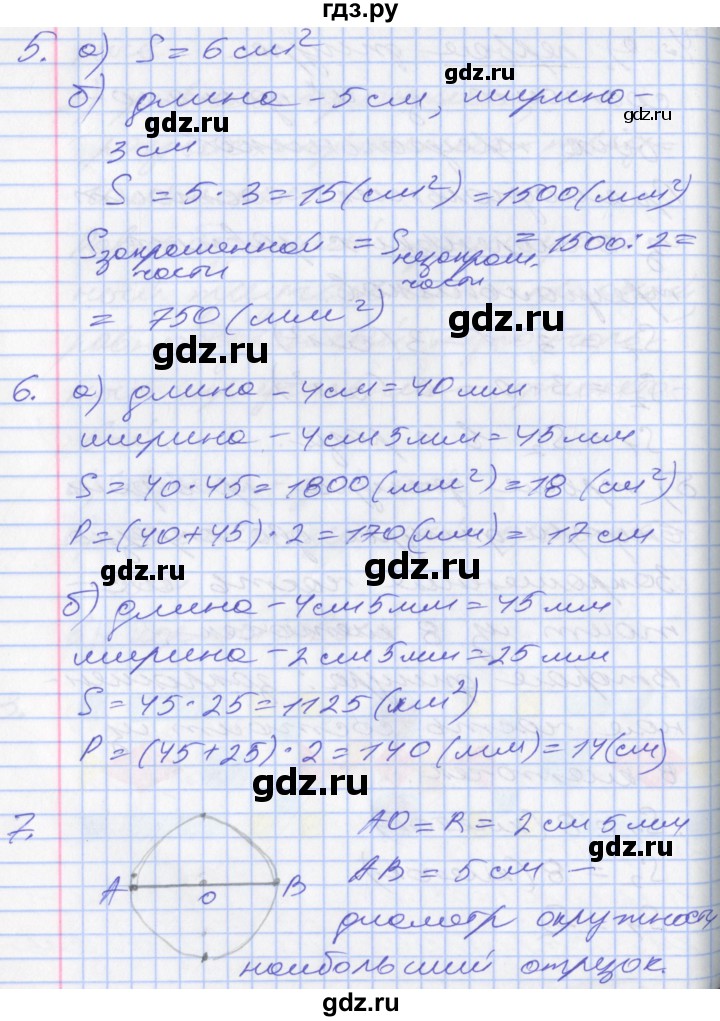 гдз.ру
5. а) S = 6 см²
gdz.ru
gdz.ru
б) длина - 5 см, ширина -
gdz.ru
3 см
S = 5 · 3 = 15 (см²) = 1500 (мм²)
Sзакрашенной части = Sнезакраш. части = 1500 : 2 =
= 750 (мм²)
gdz.ru
gdz.ru
6. а) длина - 4 см = 40 мм
ширина - 4 см 5 мм = 45 мм
gdz.ru
gdz.ru
S = 40 · 45 = 1800 (мм²) = 18 (см²)
P = (40 + 45) · 2 = 170 (мм) = 17 см
gdz.ru
gdz.ru
б) длина - 4 см 5 мм = 45 мм
ширина - 2 см 5 мм = 25 мм
S = 45 · 25 = 1125 (мм²)
P = (45 + 25) · 2 = 140 (мм) = 14 (см)
gdz.ru
7. AO = R = 2 см 5 мм
gdz.ru
A O B
AB = 5 см —
диаметр окружности
gdz.ru
наибольший отрезок.
gdz.ru